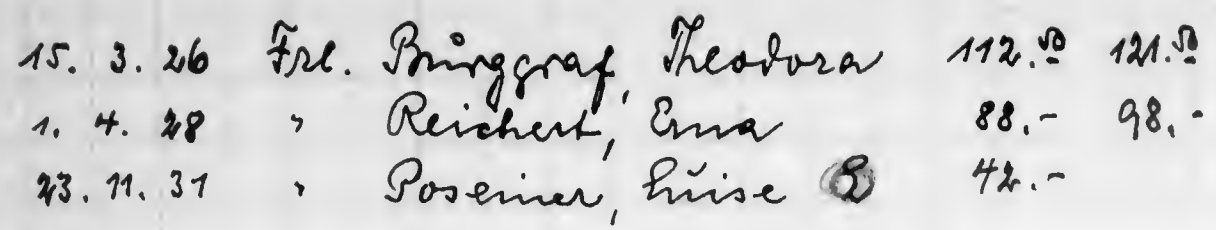 15. 3. 26 Frl. Burggraf, Theodora 112.50 121.50
1. 4. 28 " Reichert, Erna 88.- 98.-
23. 11. 31 " Poseiner, Luise 42.-